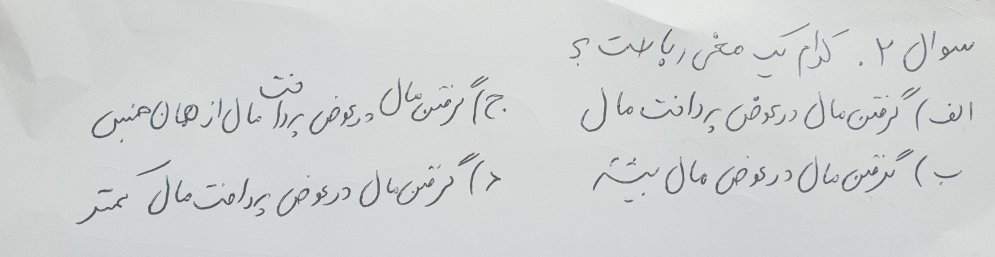 سوال ۲. کدام یک معنی ربا است؟
الف) گرفتن مال در عوض پرداخت مال
ج) گرفتن مال در عوض پرداخت مال از همان جنس
ب) گرفتن مال در عوض مال بیشتر
د) گرفتن مال در عوض پرداخت مال کمتر